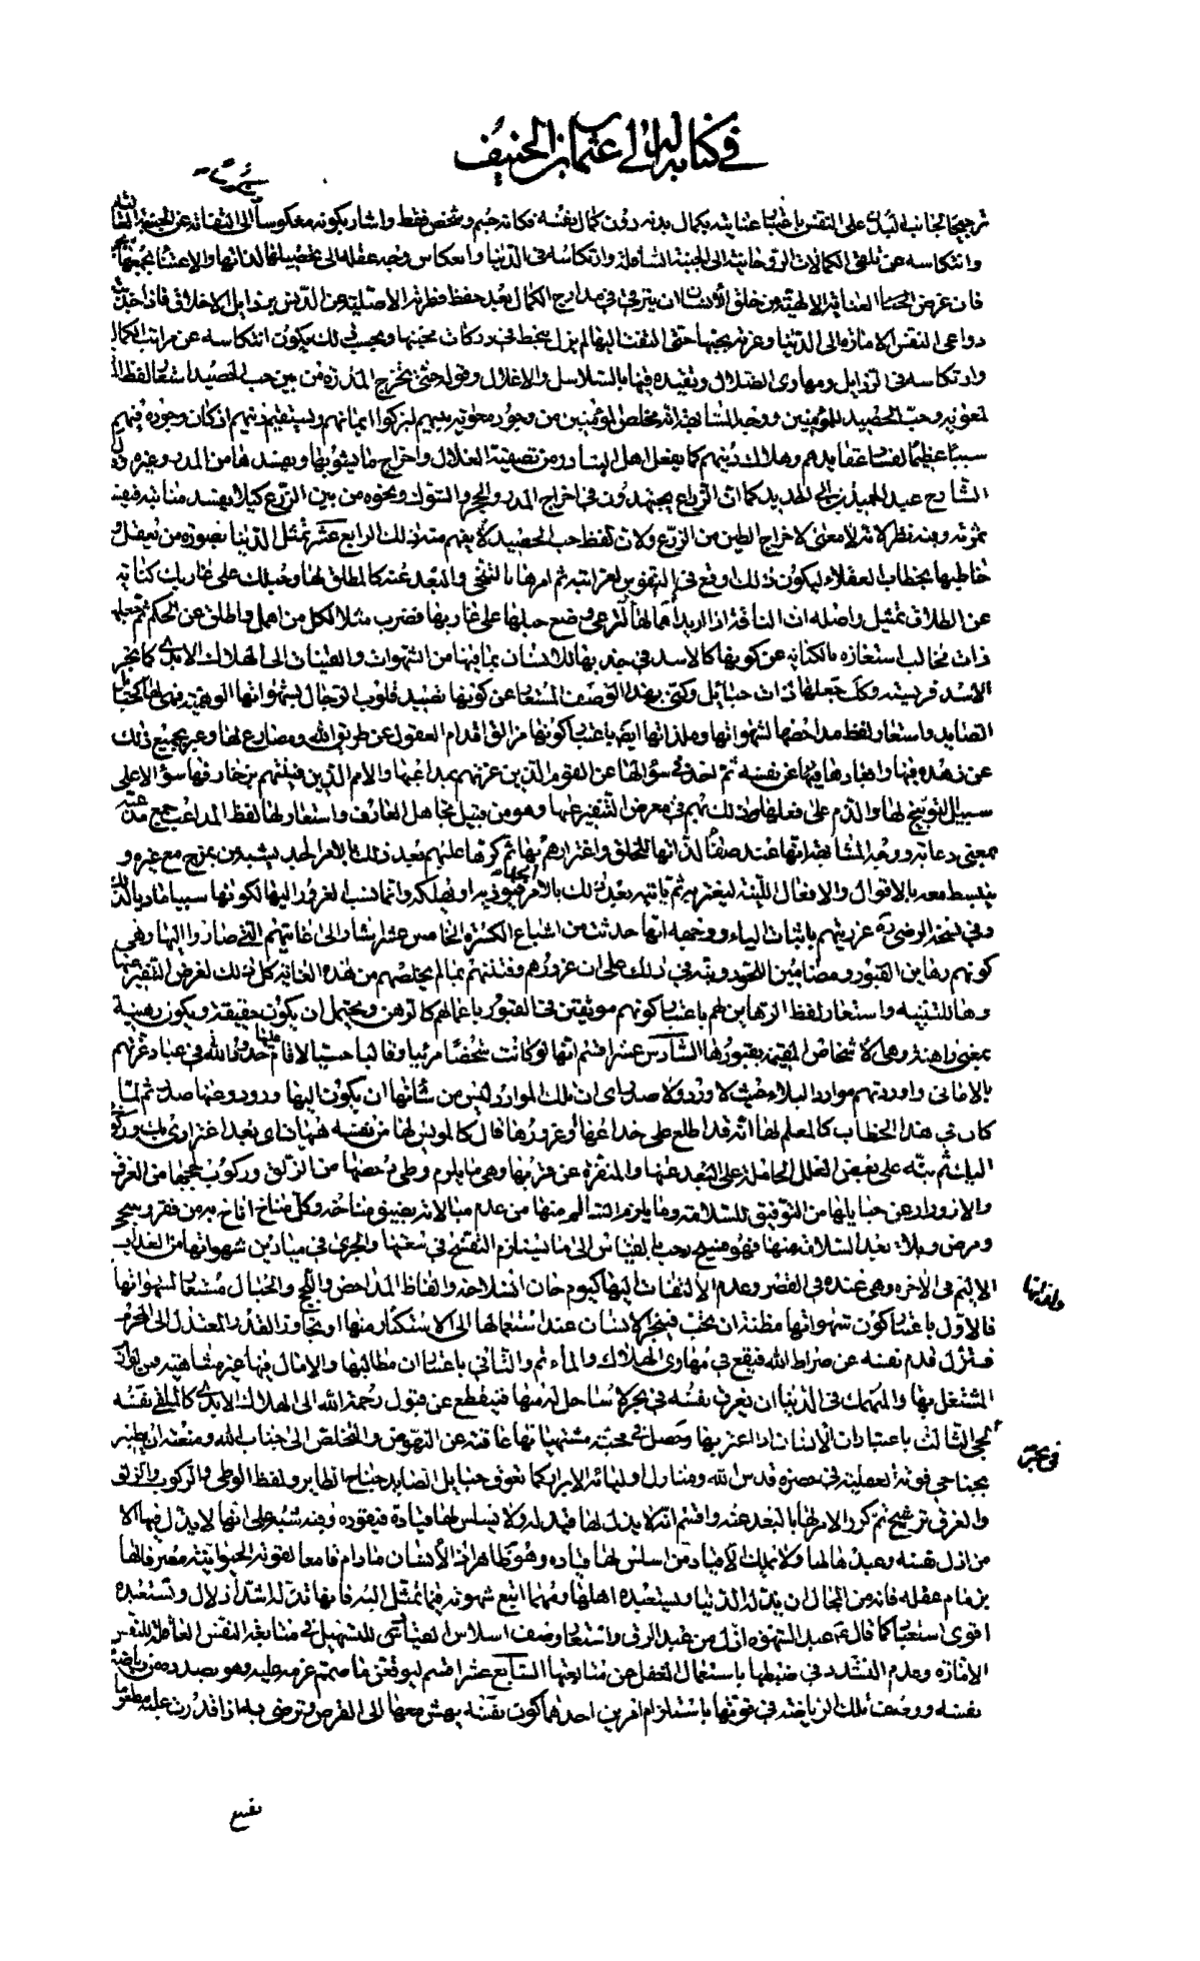 في كتابه له الى عثمان بن الحنيف
ترجيحا لجانب البدن على النفس باعتبار عنايته بكمال بدنه دون كمال نفسه فكانه جسم وشخص فقط واشار بكونه معكوسا الى التفاته عن الجنبة العالية
وانتكاسه عن تلقى الكمالات الروحانية الى الجنبة السافلة وارتكاسه في الدنيا وانعكاس وجه عقله الى تحصيلها لذاتها والاعتناء بجمعها
فان غرض العناية الالهية من خلق الانسان ان يترقى في مدارج الكمال بعد حفظ فطرته الاصلية عن الدنس برذايل الاخلاق فاذا جذبته
دواعى النفس الامارة الى الدنيا وغرته بحبها حتى التفت اليها لم يزل ينحط في دركات محبتها وبحسب ذلك يكون انتكاسه عن مراتب الكمال
وارتكاسه في الرذايل ومهاوى الضلال وتقيده فيها بالسلاسل والاغلال وقوله حتى تخرج المدرة من بين حب الحصيد استعار لفظ المدرة
لمعوية وحب الحصيد للمؤمنين ووجه المشابهة انه مخلص المؤمنين من وجود معوية بينهم ليزكوا ايمانهم ويستقيم دينهم اذ كان وجوده فيهم
سببا عظيما لفساد عقايدهم وهلاك دينهم كما يفعل اهل البيادر من تصفية الغلال واخراج ما يشوبها ويفسدها من المدر وغيره قال
الشارح عبد الحميد بن ابى الحديد كما ان الزراع يجتهدون في اخراج المدر والحجر والشوك ونحوه من بين الزرع كيلا يفسد منابته فيفسد
ثمرته وفيه نظر لانه لا معنى لاخراج الطين من الزرع ولان لفظ حب الحصيد لا يفهم منه ذلك الرابع عشر تمثل الدنيا بصورة من يعقل و
خاطبها بخطاب العقلاء ليكون ذلك اوقع في النفوس لغرابته ثم امرها بالتنحى والبعد عنه كالمطلق لها وحبلك على غاربك كناية
عن الطلاق تمثيل واصله ان الناقة اذا اريد اهمالها للرعى وضع حبلها على غاربها فضرب مثلا لكل من اهمل واطلق عن الحكم ثم جعلها
ذات مخالب استعارة بالكناية عن كونها كالاسد في جذبها للانسان بما فيها من الشهوات والقينات الى الهلاك الابدى كما يجر
الاسد فريسته وكذلك جعلها ذات حبائل وكنى بهذا الوصف المستعار عن كونها تصيد قلوب الرجال بشهواتها الوهمية فهى لها كحبائل
الصايد واستعار لفظ مداحضها لشهواتها وملذاتها ايضا باعتبار كونها مزالق اقدام العقول عن طريق الله ومصارع لها وعبر بجميع ذلك
عن زهده فيها وابعادها فيها عن نفسه ثم اخذ في سؤالها عن القوم الذين غرتهم بمداعبها والامم الذين فتنتهم بزخارفها سؤالا على
سبيل التوبيخ لها والذم على فعلها ذلك بهم في معرض التنفير عنها وهو من قبيل تجاهل العارف واستعار لها لفظ المداعب جمع مدعبة
بمعنى دعابة ووجه المشابهة انها عند صفاء لذاتها للخلق واغترارهم بها ثم كرتها عليهم بعد ذلك بالامر الجد يشبه من يمزح مع غيره و
ينبسط معه بالاقوال والافعال اللينة ليغتر به ثم ياتيه بعد ذلك بالامر الجد فيوذيه او يهلكه وانما نسب الغرور اليها لكونها سببا ماديا لذلك
وفي نسخة الرضى ره غررتيهم باثبات الياء ووجهه انها حدثت من اشباع الكسرة الخامس عشر اشار الى غايتهم التى صاروا اليها وهى
كونهم رهاين القبور ومضامين اللحود ونبه في ذلك على ان غرورهم وفتنتهم بما لم يخلصهم من هذه الغاية كل ذلك لغرض التنفير عنها
وها للتنبيه واستعار لفظ الرهاين لهم باعتبار كونهم موثقين في القبور باعمالهم كالرهن ويحتمل ان يكون حقيقة ويكون رهينة
بمعنى راهنة وهى الاشخاص المقيمة بقبورها السادس عشر اقسم انها لو كانت شخصا مرئيا وقالبا حسيا لاقام عليها حدود الله في عباد غرتهم
بالامانى واوردتهم موارد البلاء حيث لا ورد ولا صدر اى ان تلك الموارد ليس من شأنها ان يكون اليها ورود وعنها صدر ثم لما
كان في هذا الخطاب كالمعلم لها انه قد اطلع على خداعها وغرورها قال كالمويس لها من نفسه هيهات اى بعد اغترارى بك وركونى
اليك ثم نبه على بعض العلل الحاملة على البعد عنها والمنفرة عن قربها وهى ما يلزم وطى دحضها من الزلق وركوب لججها من الغرق
والازورار عن حبايلها من التوفيق للسلامة وما يلزم السالم منها من عدم مبالاته بضيق مناخه وكل مناخ اناخ به من فقر وسجن
ومرض وبلاء بعد السلامة منها فهو فسيح رحب بالقياس الى ما يستلزم التفسح في سعتها والجرى في ميادين شهواتها من العذاب
الاليم في الاخرة وهى عنده في القصر وعدم الالتفات اليها كيوم حان انسلاخه والفاظ المداحض واللجج والحبال مستعار لشهواتها
ولذاتها
فالاول باعتبار كون شهواتها مظنة ان يحب فينجر الانسان عند استعمالها الى الاستكثار منها او تجاوز القدر المعتدل الى المحرم
فتزل قدم نفسه عن صراط الله فيقع في مهاوى الهلاك والماثم والثانى باعتبار ان مطالبها والامال فيها غير متناهية فمن لوازم
المشتغل بها والمنهمك في الدنيا ان يغرق نفسه في بحر لا ساحل له منها فينقطع عن قبول رحمة الله الى الهلاك الابدى كالملقى نفسه
في بحر
لجى الثالث باعتبار ان الانسان اذا اغتر بها وحصل في محبة مشتهياتها عاقته عن النهوض والتخلص الى جناب الله ومنعته ان يطير
بجناحى قوته العقلية في حضرة قدس الله ومنازل اوليائه الابرار كما تعوق حبايل الصايد جناح الطاير ولفظ الوطى والركوب والزلق
والغرق ترشيح ثم كرر الامر لها بالبعد عنه واقسم انه لا يذل لها فتستذله ولا يسلس لها قيادة فتقوده وفيه تنبيه على انها لا يذل فيها الا
من اذل نفسه وعبدها لها ولا يملك الا قياد من اسلس لها قياده وهو ظاهر اذ الانسان مادام قامعا لقوته الحيوانية مصرفا لها
بزمام عقله فانه من المحال ان يذله الدنيا ويستعبده اهلها ومهما اتبع شهوته فيما تمثل اليه فانها تذله اشد اذلال وتستعبده
اقوى استعباد كما قال ع عبد الشهوة اذل من عبد الرق واستعار وصف اسلاس القياد للتسهيل في متابعة النفس العاقلة للنفس
الامارة وعدم التشدد في ضبطها باستعمال العقل عن متابعتها السابع عشر اقسم ليوقعن ما صمم عزمه عليه وهو بصدده من رياضة
نفسه ووصف تلك الرياضة في قوتها باستلزام امرين احدهما كون نفسه يهش معها الى القرص وترضى به اذا قدرت عليه مطعوما